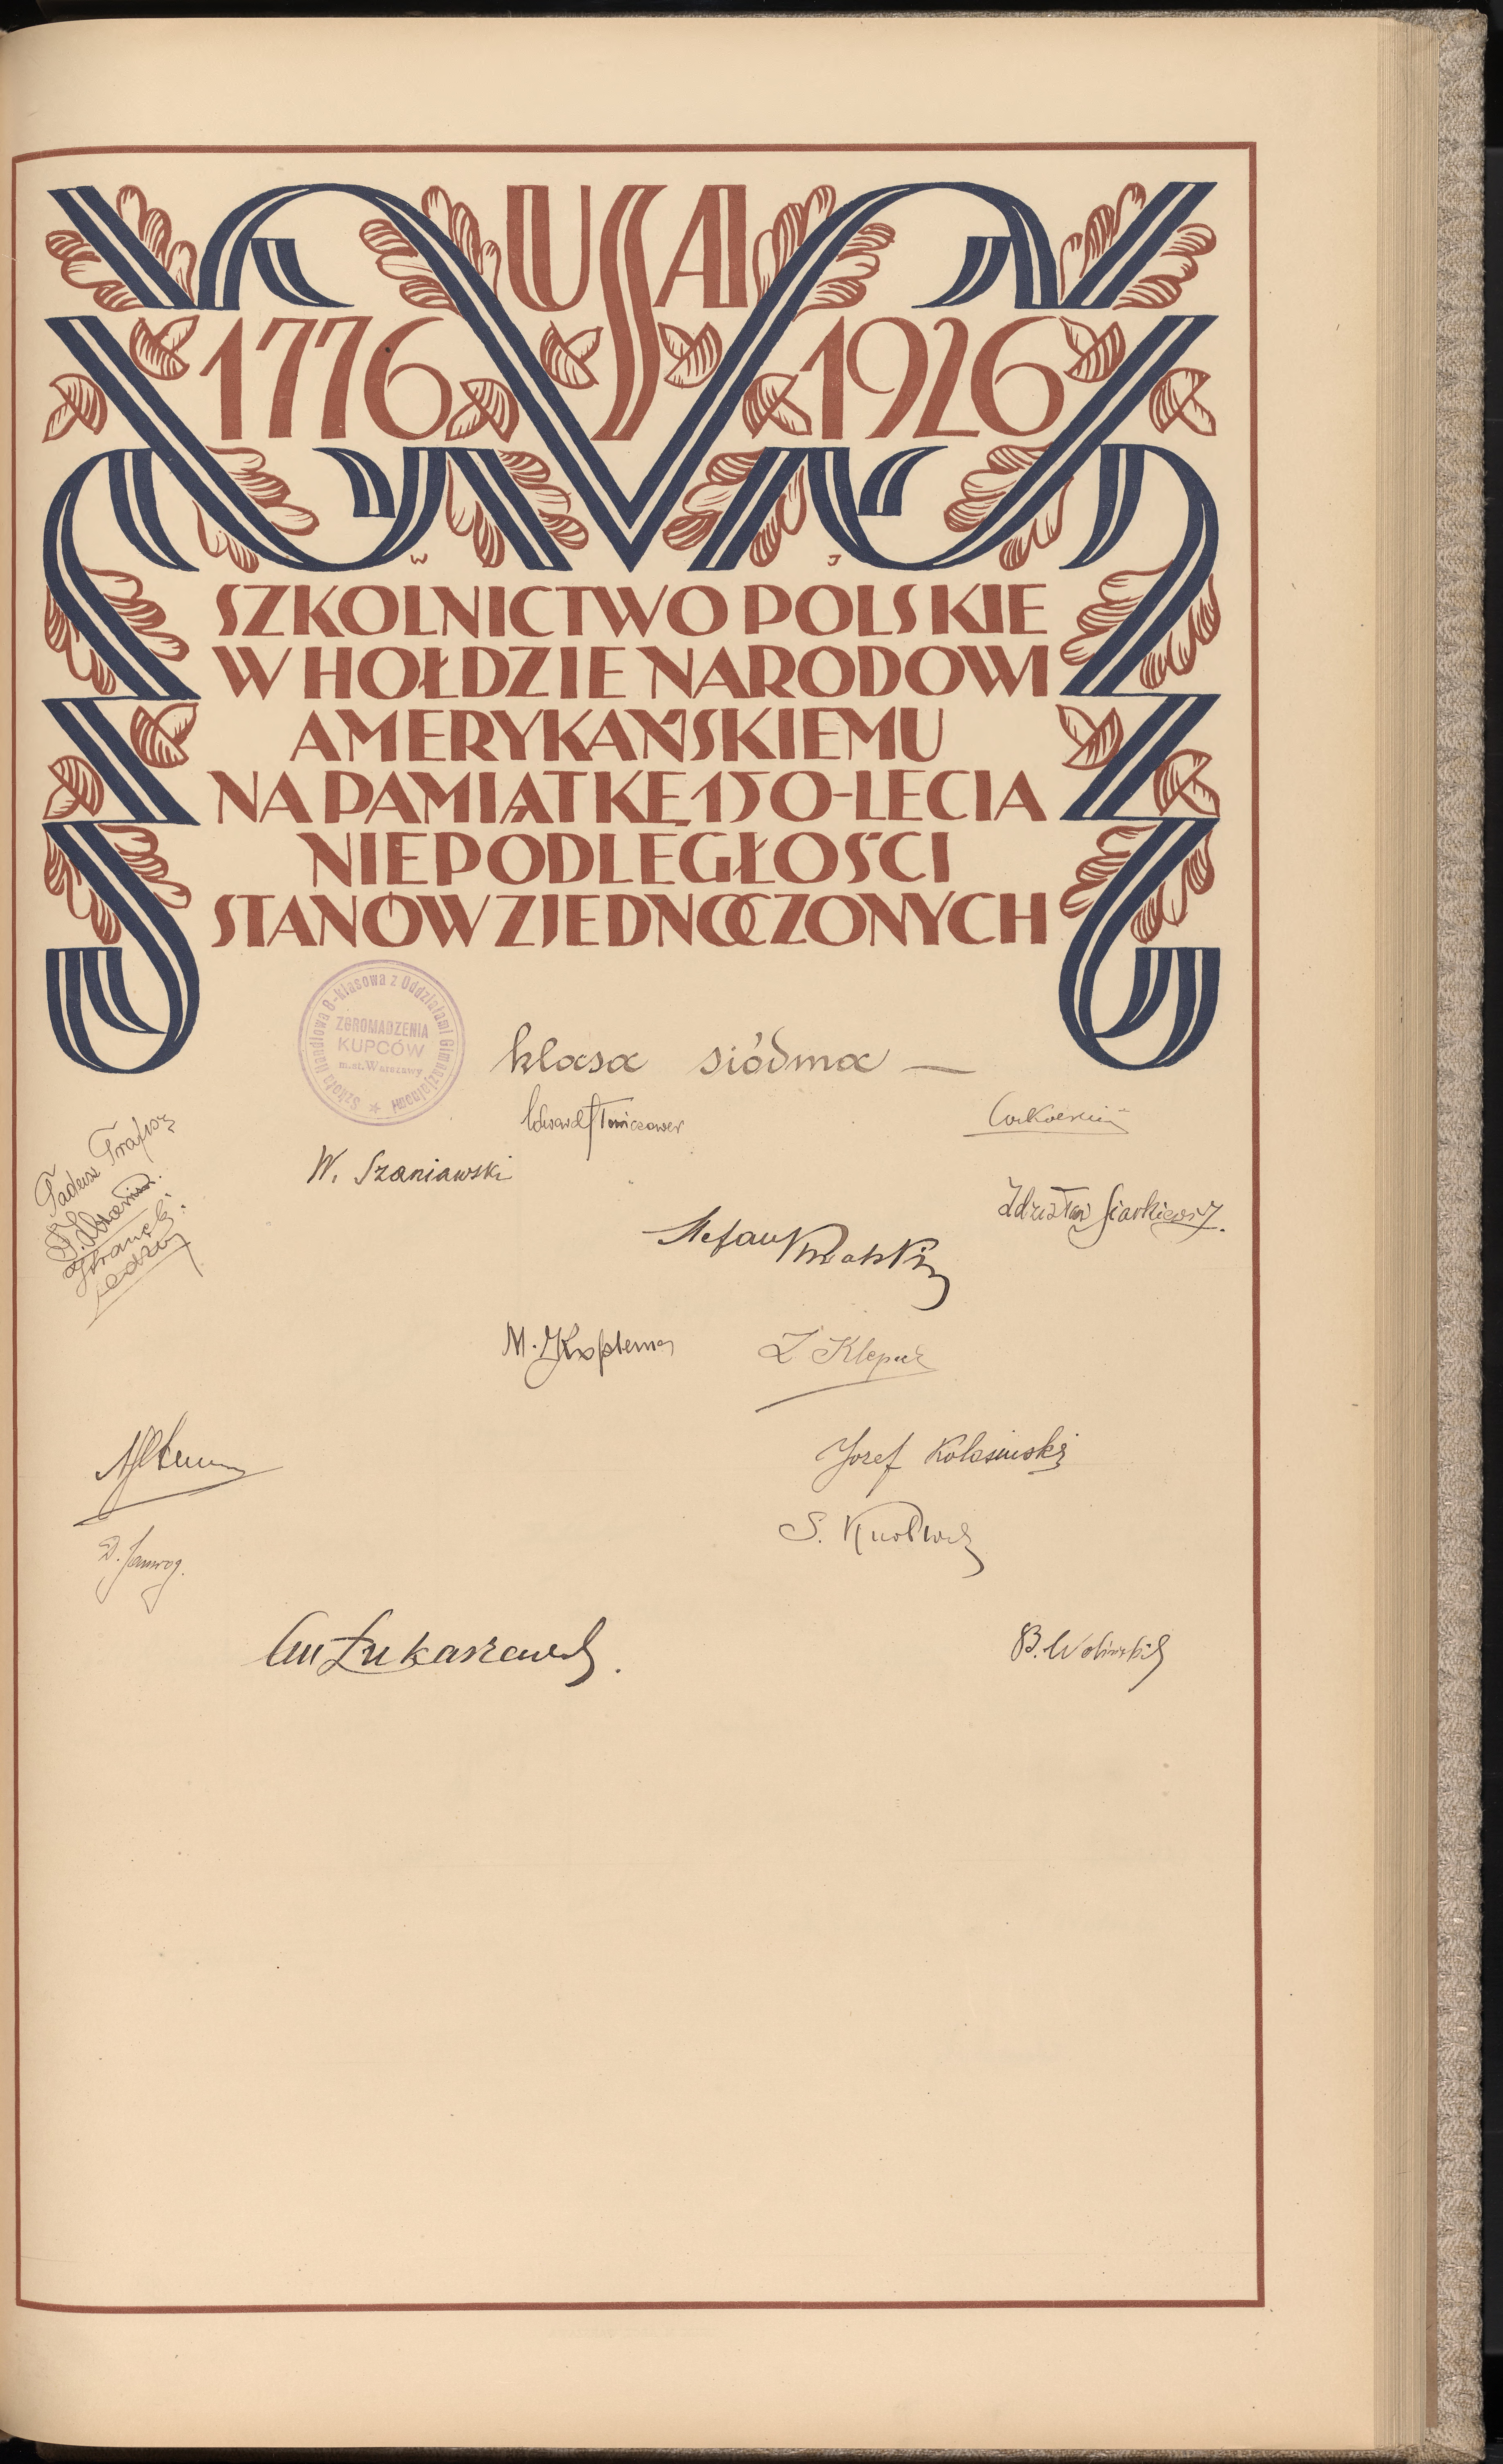 USA
1776 1926
W J
SZKOLNICTWO POLSKIE
W HOŁDZIE NARODOWI
AMERYKAŃSKIEMU
NA PAMIĄTKĘ 150-LECIA
NIEPODLEGŁOŚCI
STANÓW ZJEDNOCZONYCH
Szkoła Handlowa 8-klasowa z Oddziałami Gimnazjalnemi
ZGROMADZENIA
KUPCÓW
m.st. Warszawy
klasa siódma —
Edward
Tadeusz
W. Szaniawski
Zdzisław Siarkiewicz.
Stefan
M.
Z Klepacz
Jozef Kolasinski
S.
D. Jamrog.
Łukaszewski.
B. Woliński